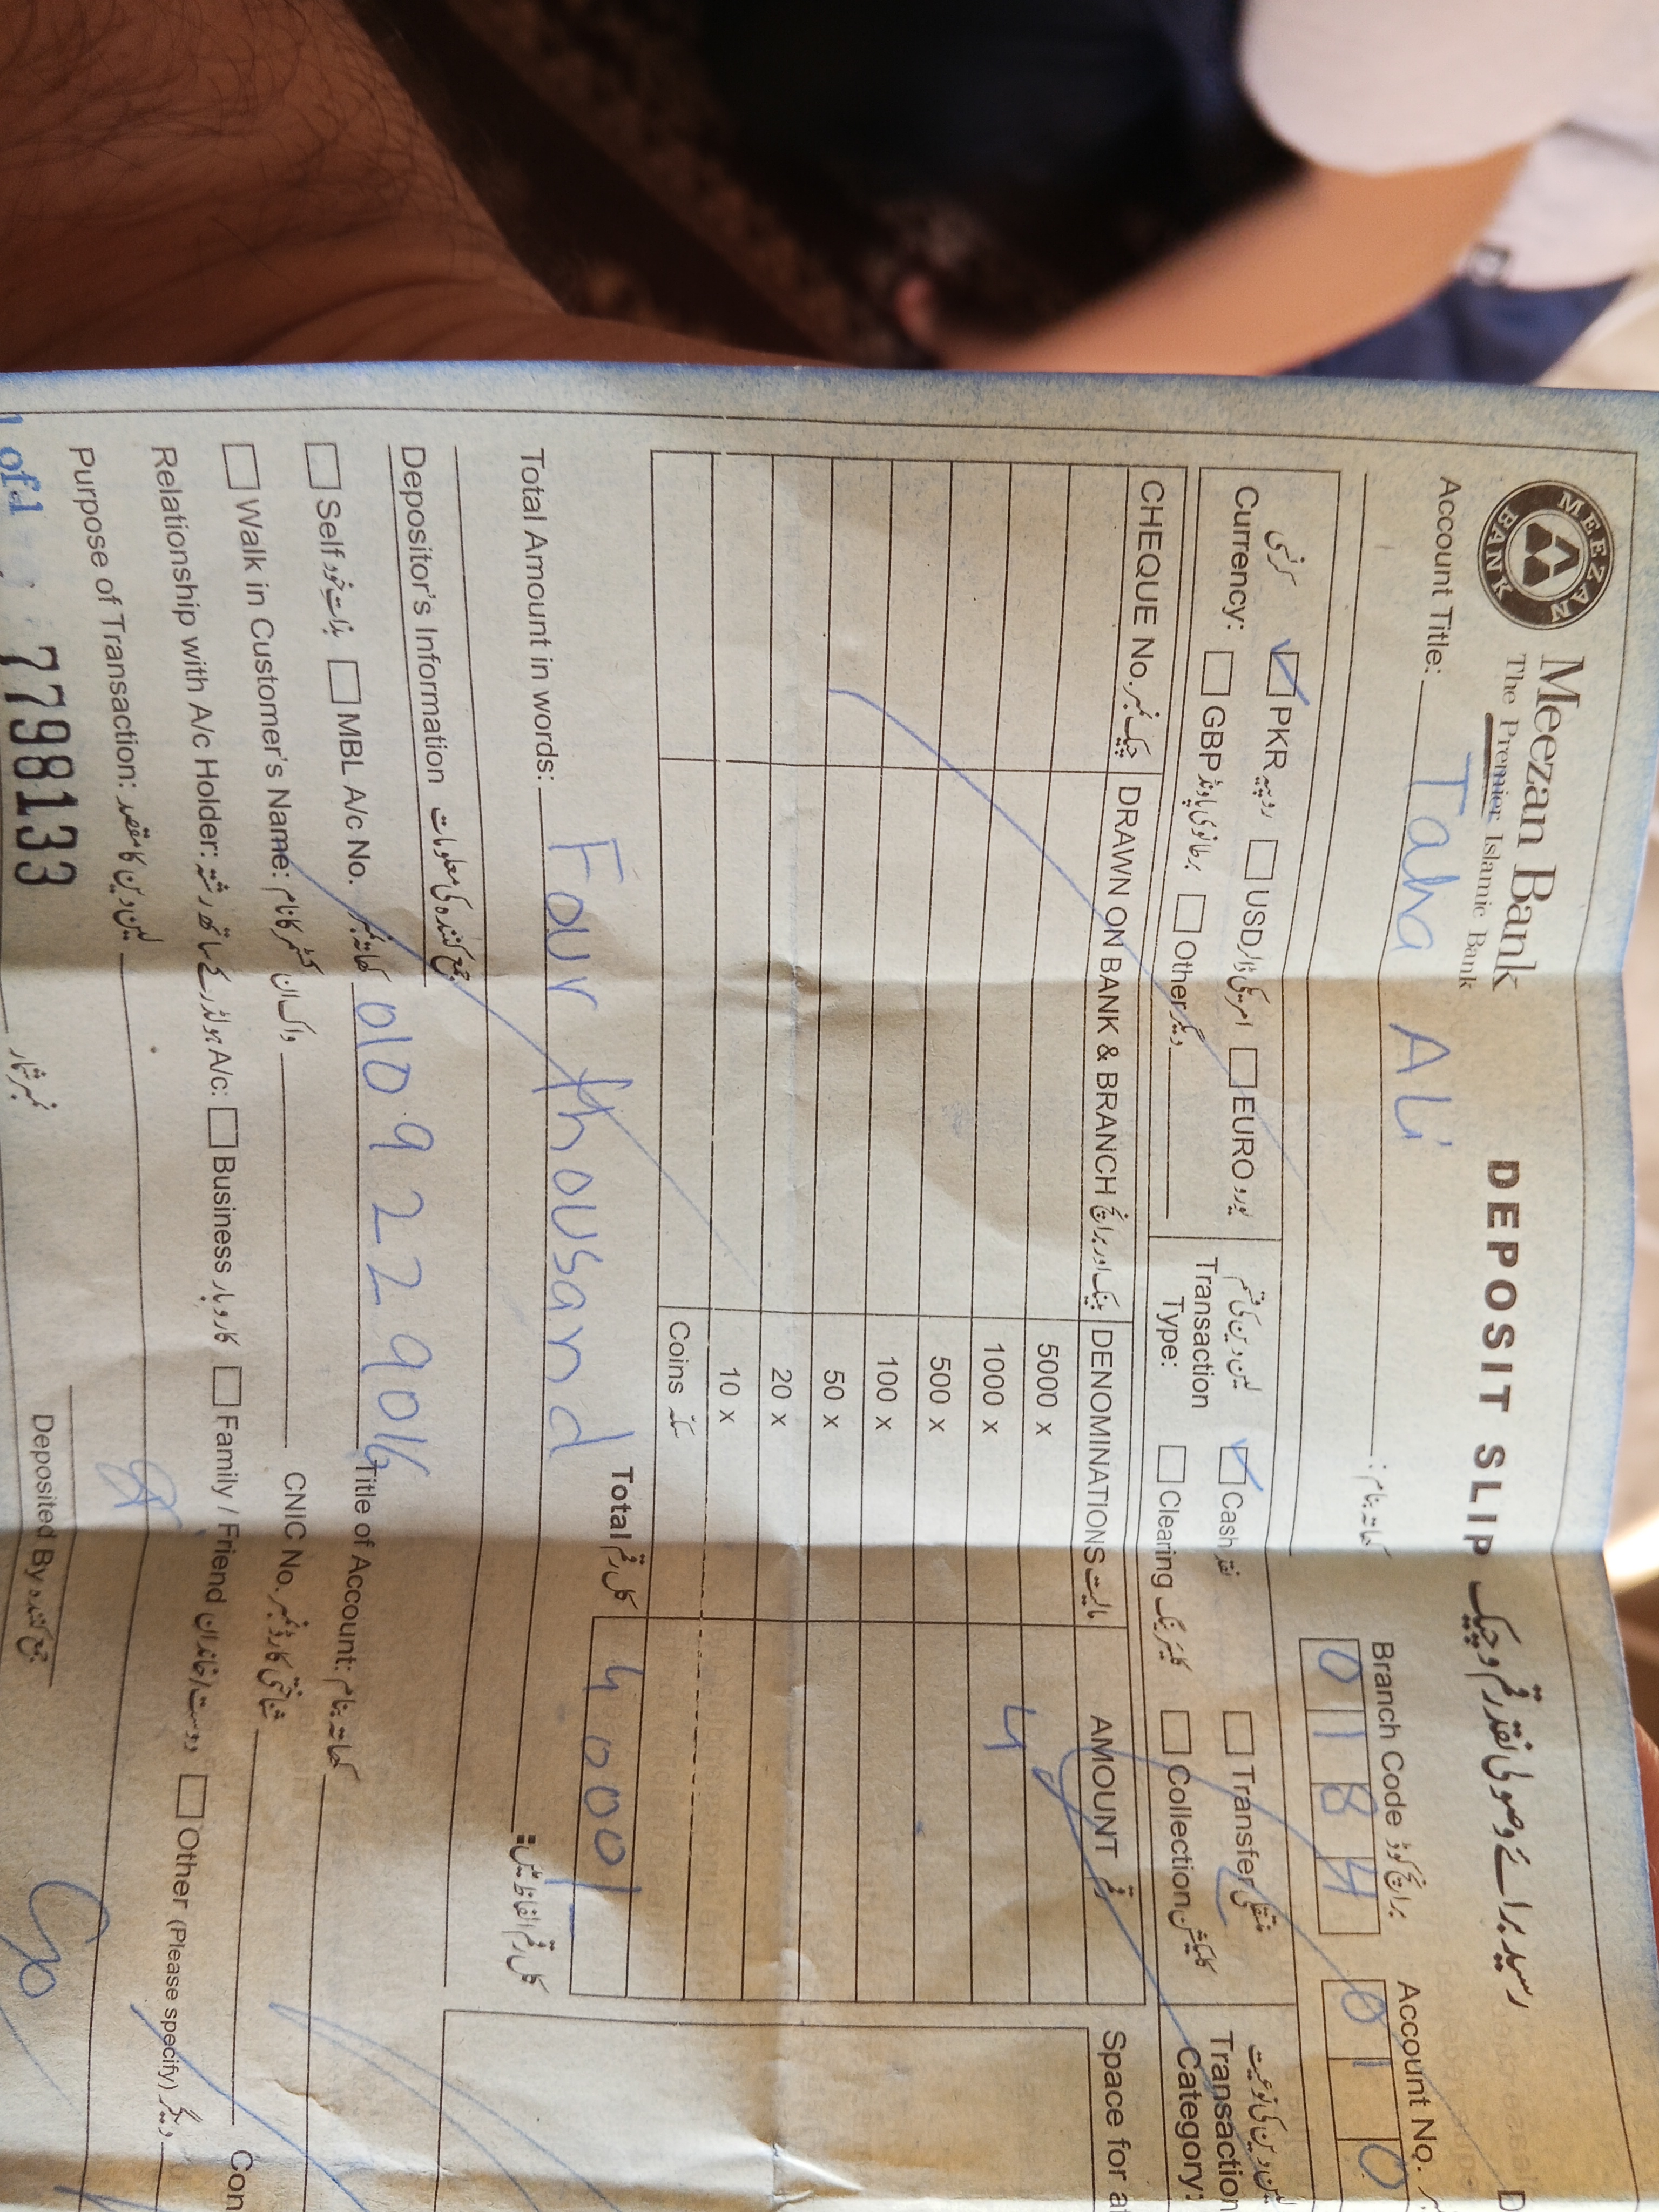 MEEZAN BANK
Meezan Bank
The Premier Islamic Bank
DEPOSIT SLIP رسید برائے وصولی نقد رقم و چیک
Account Title: Taha Ali :کھاتہ بنام
Branch Code برانچ کوڈ Account No.
0184 010
کرنسی
Currency:
☑ PKR روپیہ ☐ USD امریکی ڈالر ☐ EURO یورو
☐ GBP برطانوی پاؤنڈ ☐ Other دیگر
لین دین کی قسم
Transaction Type:
☑ Cash نقد ☐ Transfer منتقلی
☐ Clearing کلیئرنگ ☐ Collection کلیکشن
لین دین کی نوعیت
Transaction Category:
CHEQUE No. چیک نمبر DRAWN ON BANK & BRANCH بینک اور برانچ DENOMINATIONS مالیت AMOUNT رقم Space for
5000 x
1000 x 4
500 x
100 x
50 x
20 x
10 x
Coins سکے
Total کل رقم 4000/
Total Amount in words: Four thousand کل رقم الفاظ میں:
Depositor's Information جمع کنندہ کی معلومات
☐ Self بذات خود ☐ MBL A/c No. کھاتہ نمبر Title of Account: کھاتہ بنام
☐ Walk in Customer's Name: واک ان کسٹمر کا نام CNIC No. شناختی کارڈ نمبر
Relationship with A/c Holder: ہولڈر کے ساتھ رشتہ A/c: ☐ Business کاروبار ☐ Family / Friend دوست/خاندان ☐ Other (Please specify) دیگر
Purpose of Transaction: لین دین کا مقصد
7798133 نمبر شمار
Deposited By جمع کنندہ